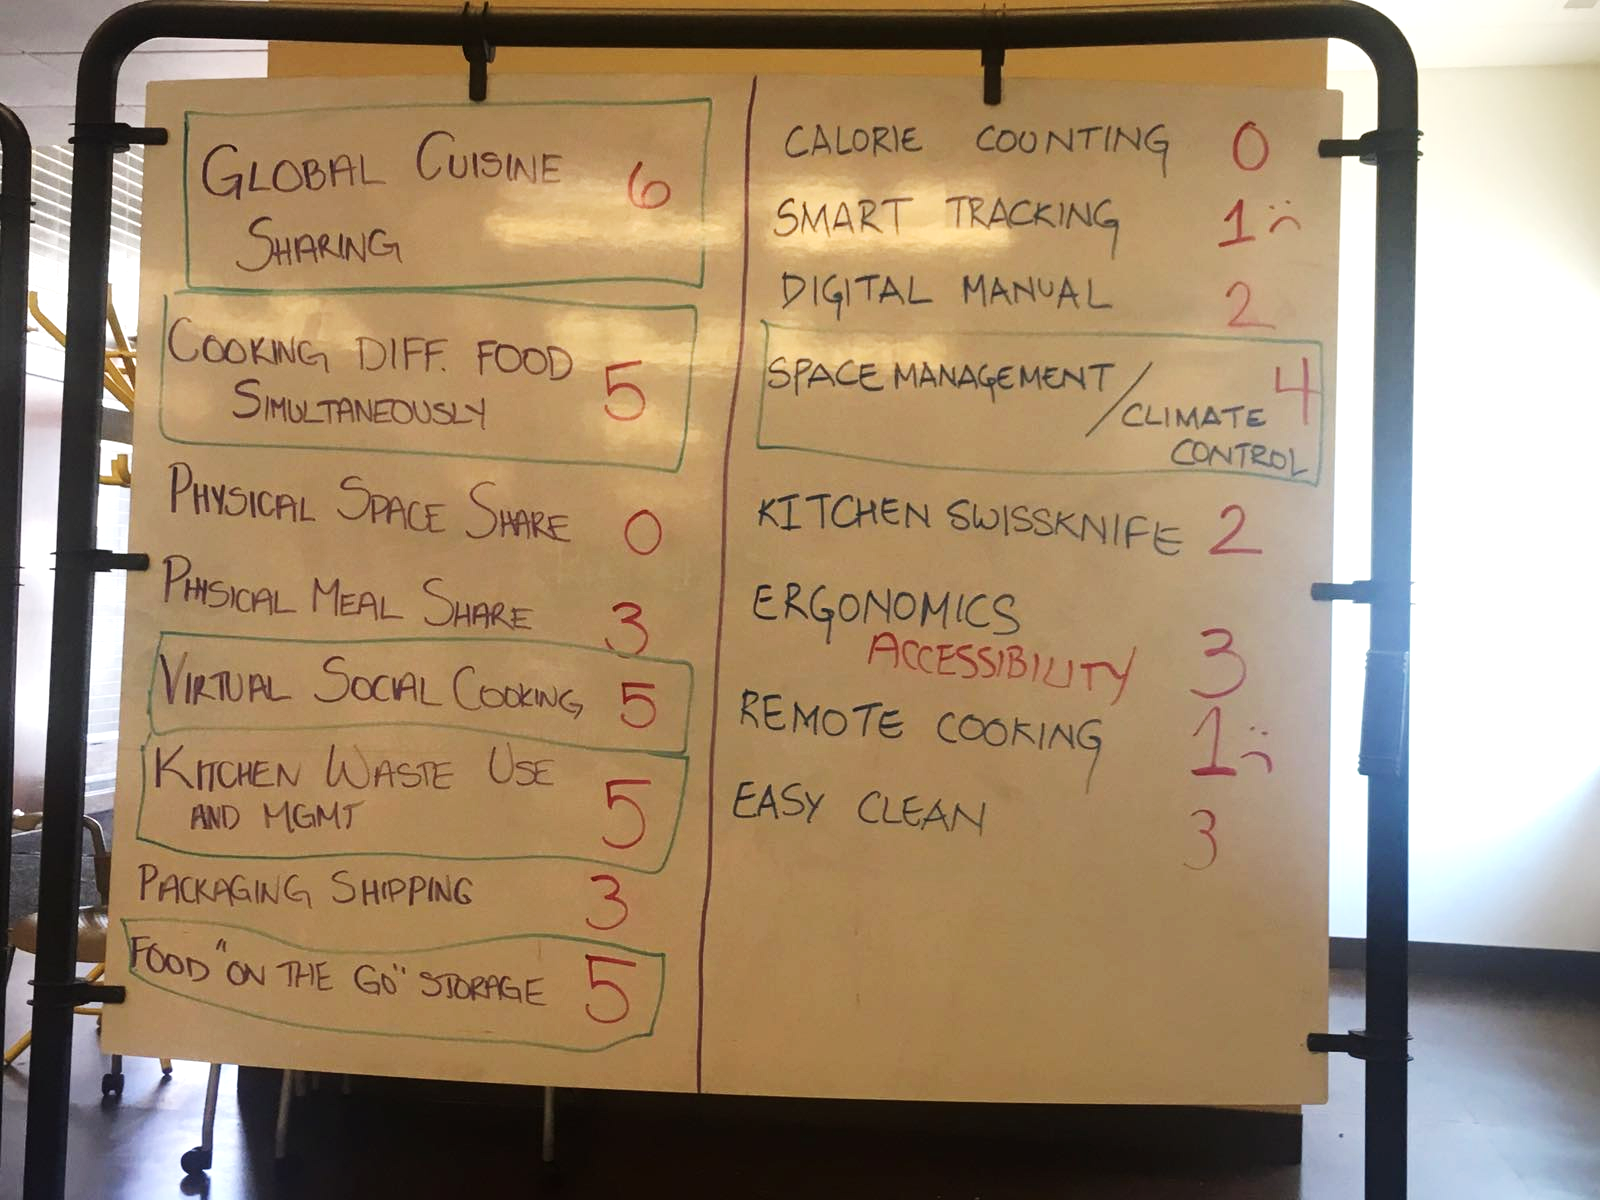 GLOBAL CUISINE 6
SHARING
COOKING DIFF. FOOD
SIMULTANEOUSLY 5
PHYSICAL SPACE SHARE 0
PHYSICAL MEAL SHARE 3
VIRTUAL SOCIAL COOKING 5
KITCHEN WASTE USE
AND MGMT 5
PACKAGING SHIPPING 3
FOOD "ON THE GO" STORAGE 5
CALORIE COUNTING 0
SMART TRACKING 1 :(
DIGITAL MANUAL 2
SPACE MANAGEMENT / 4
CLIMATE
CONTROL
KITCHEN SWISSKNIFE 2
ERGONOMICS
ACCESSIBILITY 3
REMOTE COOKING 1 :(
EASY CLEAN 3